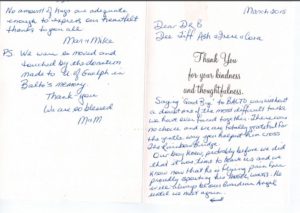 March 2015
Dear Dr B
Dee Tiff Ash
Thank You
for your kindness
and thoughtfulness.
Saying "Good Bye" to BALTO was
a of the most difficult tasks
we have ever faced together. There was
no choice and we are totally grateful for
the gentle way you helped him cross
The Rainbow Bridge
Our boy knew, probably before we did
that it was time to leave us and we
know now that he is flying pain free
proudly his wings. He
our Guardian Angel
until we meet again.
No amount of hugs are adequate
enough to express our heartfelt
thanks to you all
Mar & Mike
PS. We were so moved and
touched by the donation
made to U of Guelph in
Balto's memory
Thank you.
We are so blessed
M&M